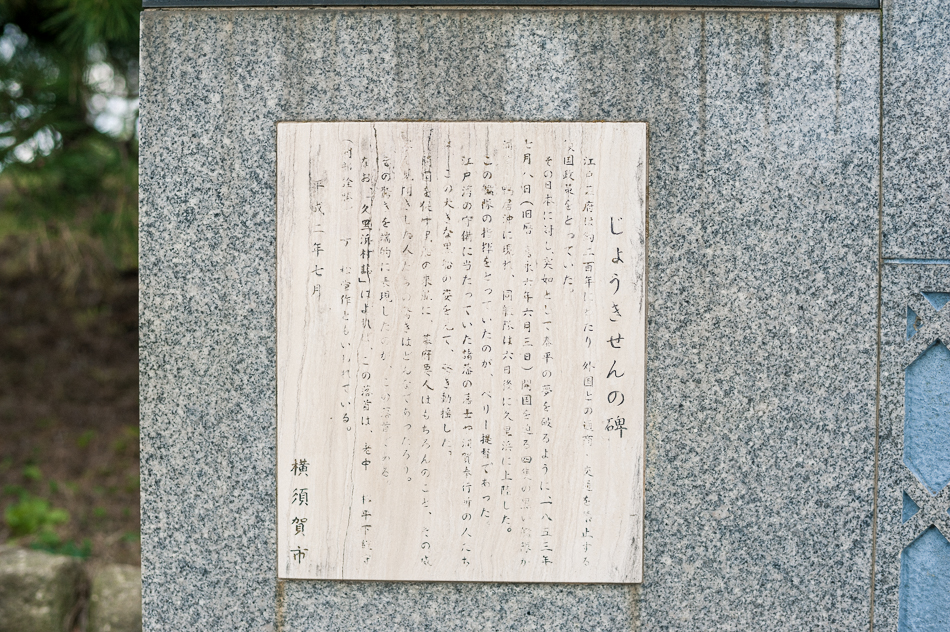 じょうきせんの碑
江戸幕府は約二百年にわたり 外国との 交易を禁止する
鎖国政策をとっていた。
その日本に対し突如として泰平の夢を破るように、一八五三年
七月八日(旧暦 六年六月三日)開国を迫る四隻の黒い
沖に現れ、同 は六日後に久里浜に上陸した。
この艦隊の指揮をとっていたのが、ペリー提督であった
江戸湾の守備に当たっていた諸藩の藩士や浦賀奉行所の人たち
この大きな黒い船の姿を見て、驚き動揺した。
開国を 来航に、幕府要人はもちろんのこと、その噂
を聞きした人たちの驚きはどんなであったろう。
その驚きを端的に表現したのが、この落首である
なお「久里浜村誌」によれば、この落首は、老中 松平下総守
作ともいわれている。
平成二年七月
横須賀市